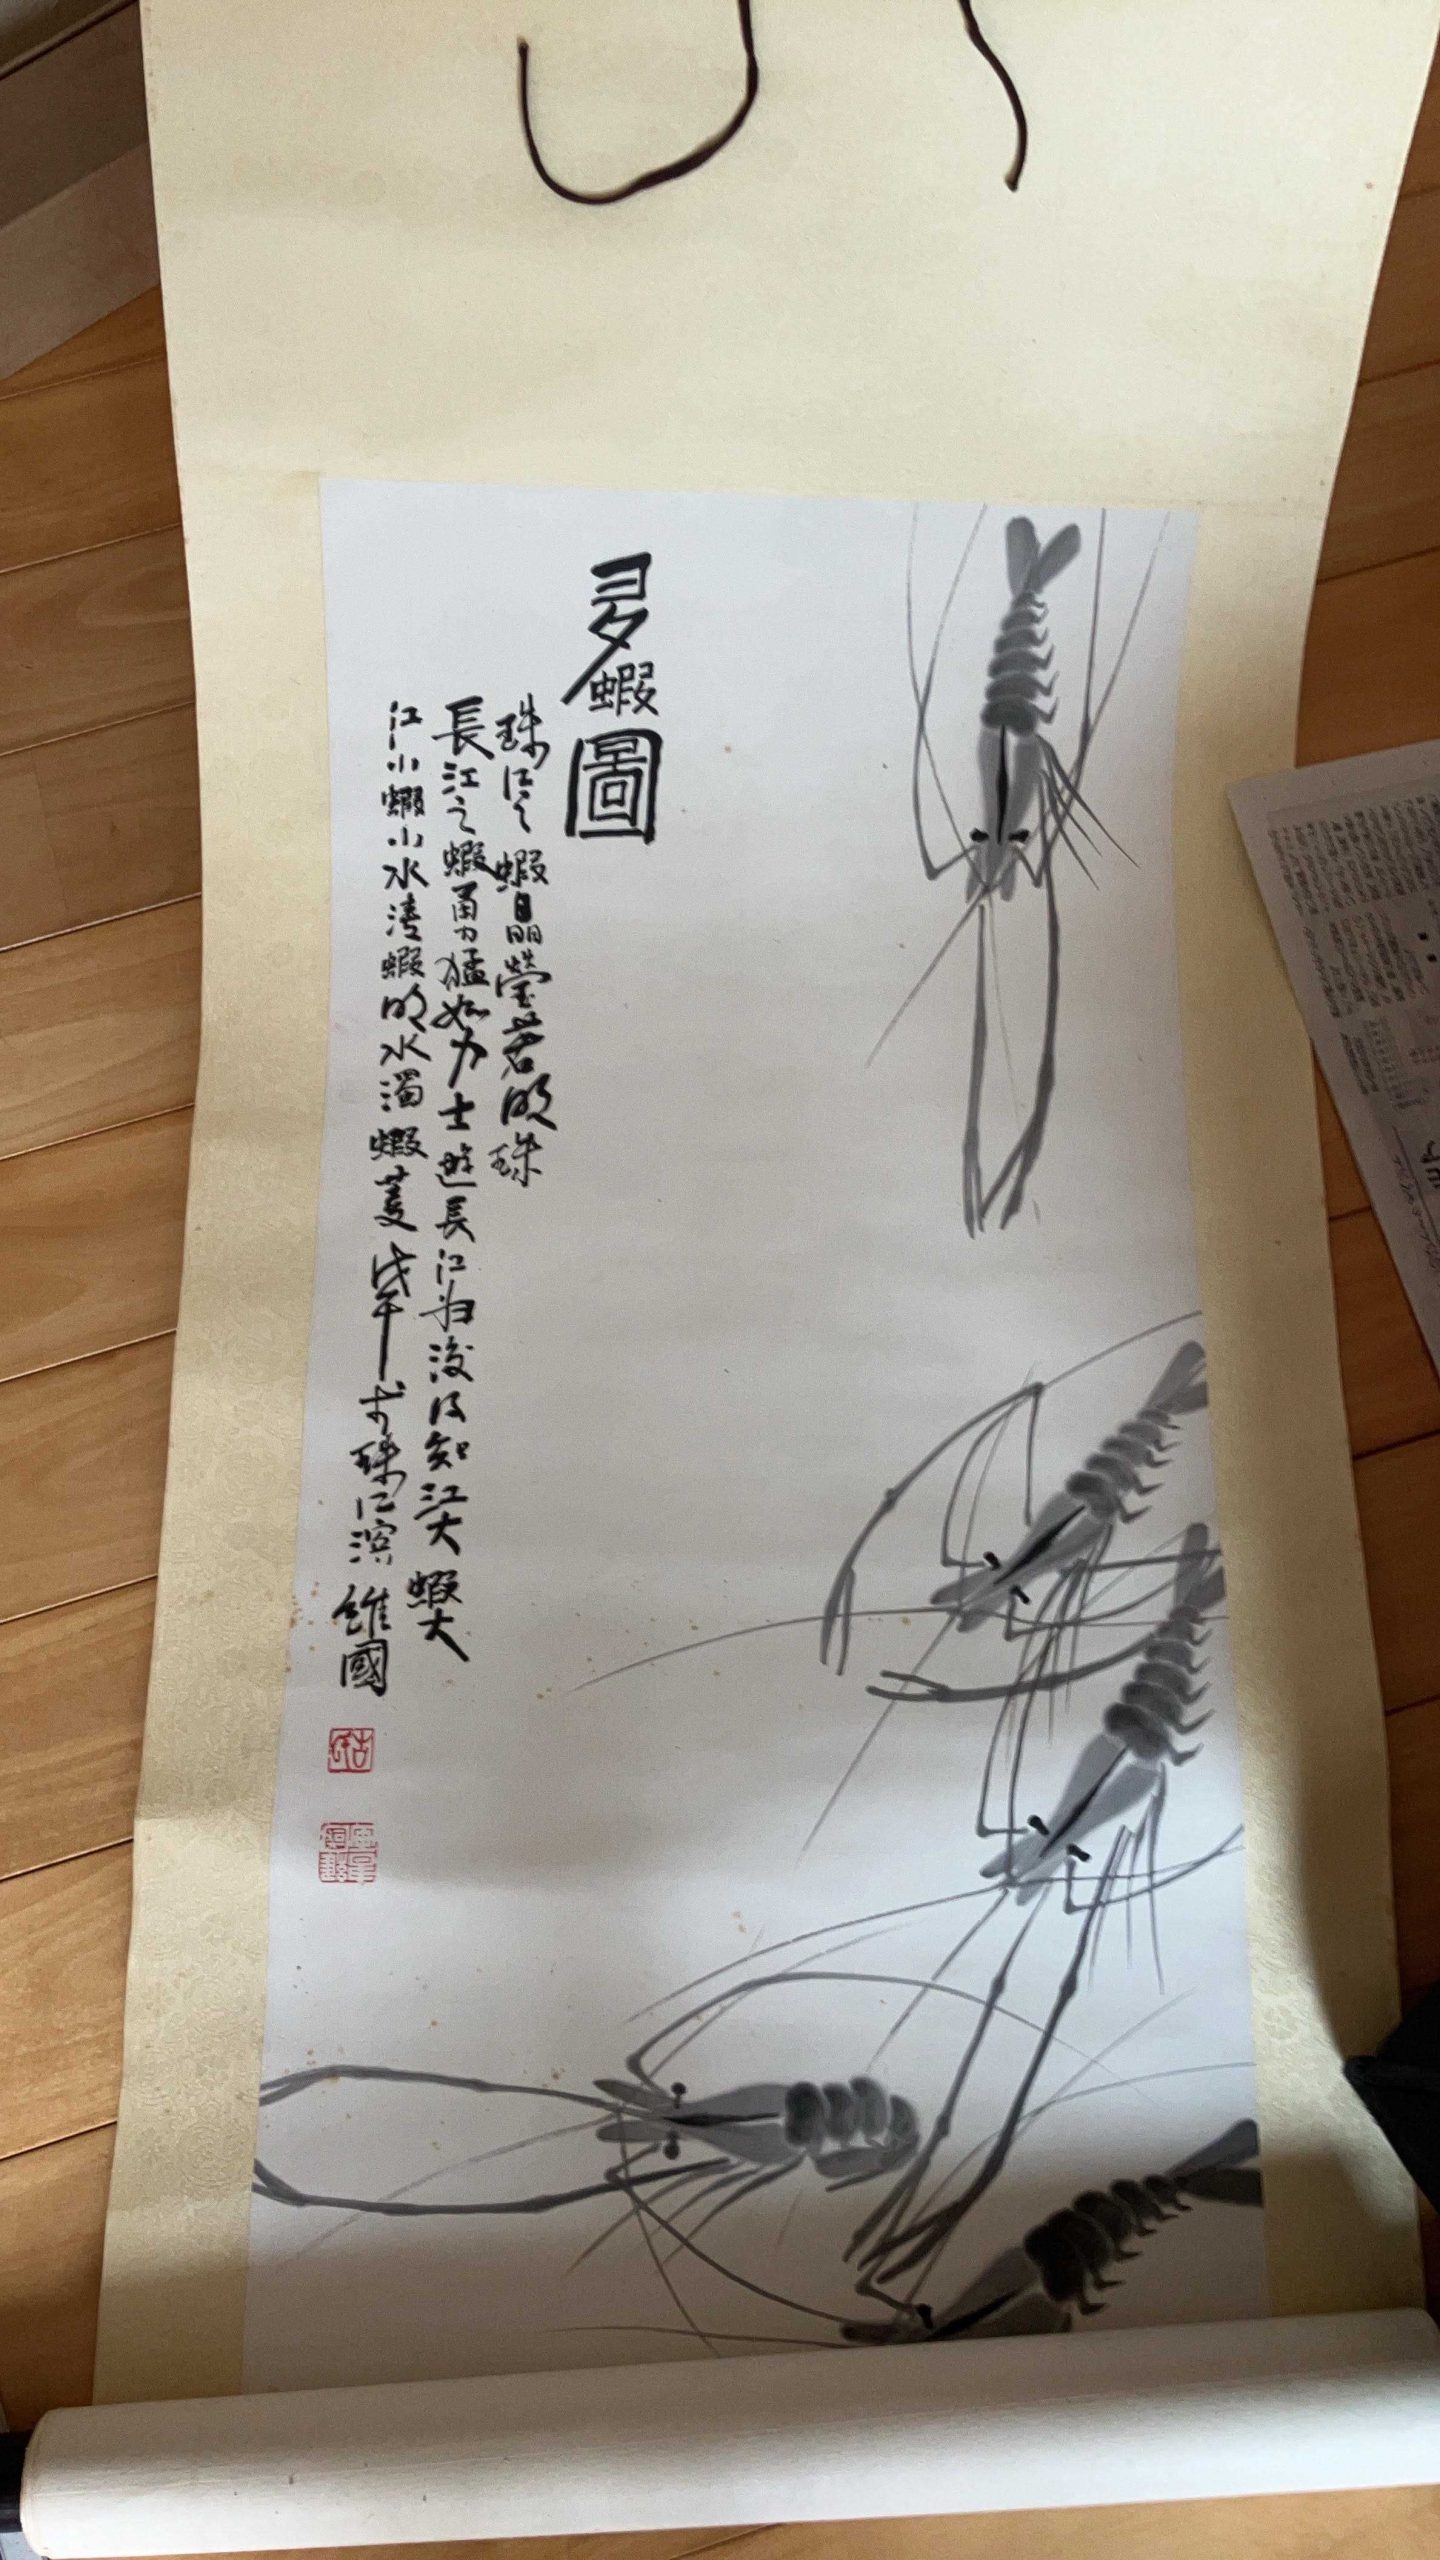 多蝦圖
珠江之蝦晶瑩若明珠
長江之蝦勇猛如力士遊長江归後仅知江大蝦大
江小蝦小水清蝦明水濁蝦萎戊午于珠江濱維國